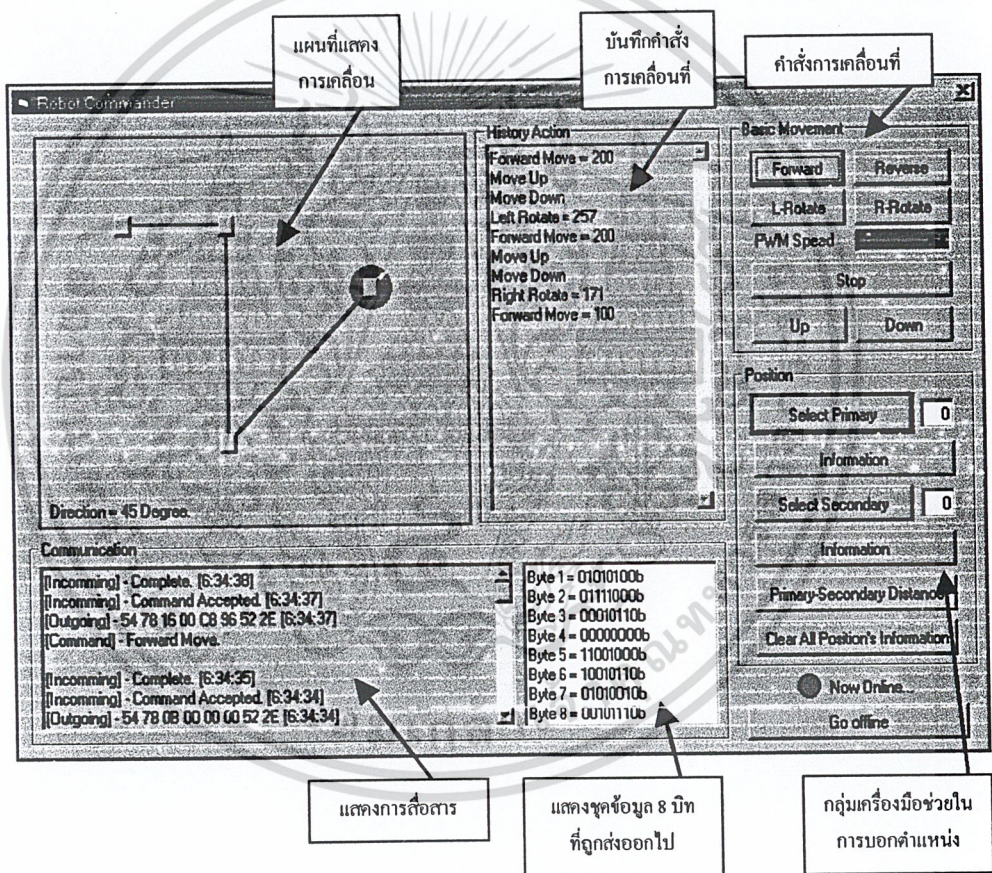 แผนที่แสดง
การเคลื่อน
บันทึกคำสั่ง
การเคลื่อนที่
คำสั่งการเคลื่อนที่
Robot Commander
Direction = 45 Degree.
History Action
Forward Move = 200
Move Up
Move Down
Left Rotate = 257
Forward Move = 200
Move Up
Move Down
Right Rotate = 171
Forward Move = 100
Basic Movement
Forward
Reverse
L-Rotate
R-Rotate
PWM Speed
Stop
Up
Down
Position
Select Primary
0
Information
Select Secondary
0
Information
Primary-Secondary Distance
Clear All Position's Information
Now Online...
Go offline
Communication
[Incomming] - Complete. [6:34:38]
[Incomming] - Command Accepted. [6:34:37]
[Outgoing] - 54 78 16 00 C8 96 52 2E [6:34:37]
[Command] - Forward Move.
[Incomming] - Complete. [6:34:35]
[Incomming] - Command Accepted. [6:34:34]
[Outgoing] - 54 78 0B 00 00 00 52 2E [6:34:34]
Byte 1 = 01010100b
Byte 2 = 01111000b
Byte 3 = 00010110b
Byte 4 = 00000000b
Byte 5 = 11001000b
Byte 6 = 10010110b
Byte 7 = 01010010b
Byte 8 = 00101110b
แสดงการสื่อสาร
แสดงชุดข้อมูล 8 บิท
ที่ถูกส่งออกไป
กลุ่มเครื่องมือช่วยใน
การบอกตำแหน่ง